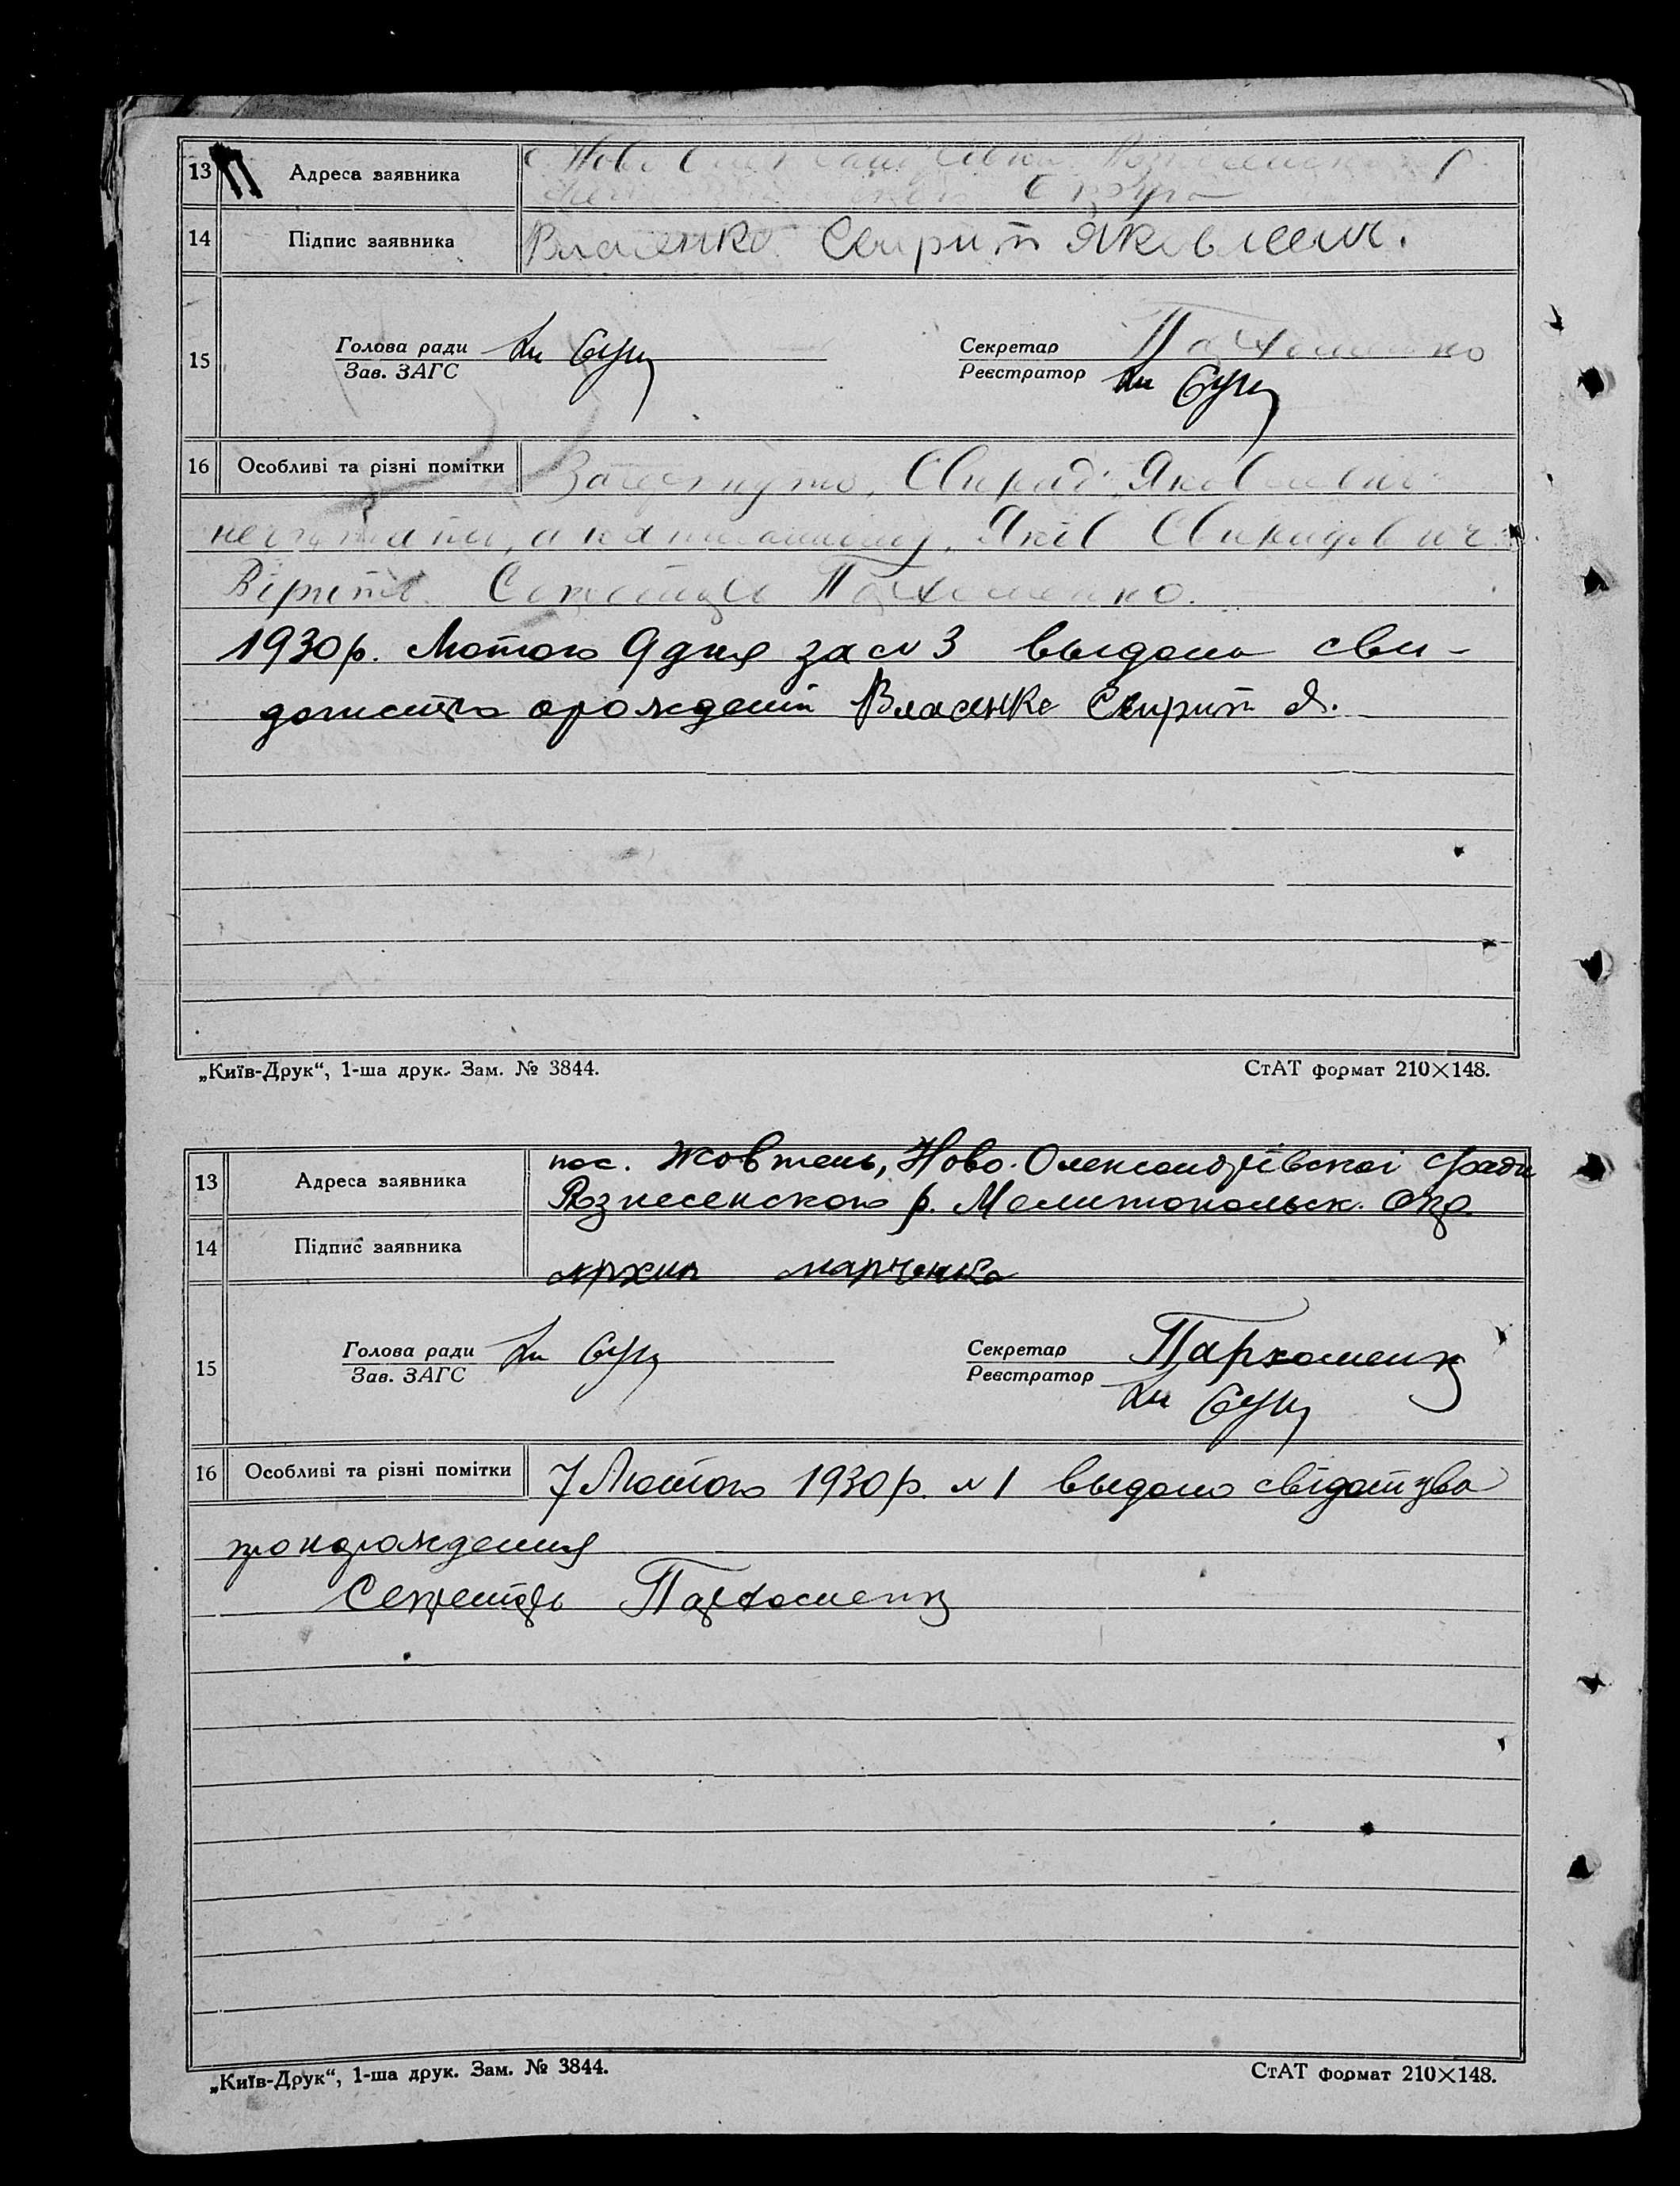 13 Адреса заявника с. Ново
Округа
14 Підпис заявника Власенко Свирит Яковлевич.
15 Голова ради Секретар Пархоменко
Зав. ЗАГС Реєстратор
16 Особливі та різні помітки Закреснуто, Свирид Яковлевич
не считати, а Яків Свиридович
Вірить Секретарь Пархоменко.
1930 р. Лютого 9 дня за № 3 выдано сви-
о рождении Власенко Свирит Я.
„Київ-Друк“, 1-ша друк. Зам. № 3844. СтАТ формат 210×148.
13 Адреса заявника пос. Жовтень, Ново-Олександрівскоі с/ради
Вознесенского р. Мелитопольск. Окр.
14 Підпис заявника Архип Марченко
15 Голова ради Секретар Пархоменко
Зав. ЗАГС Реєстратор
16 Особливі та різні помітки 7 Лютого 1930 р. № 1 выдано свідоцтва
про нарождения
Секретарь Пархоменко
„Київ-Друк“, 1-ша друк. Зам. № 3844. СтАТ формат 210×148.